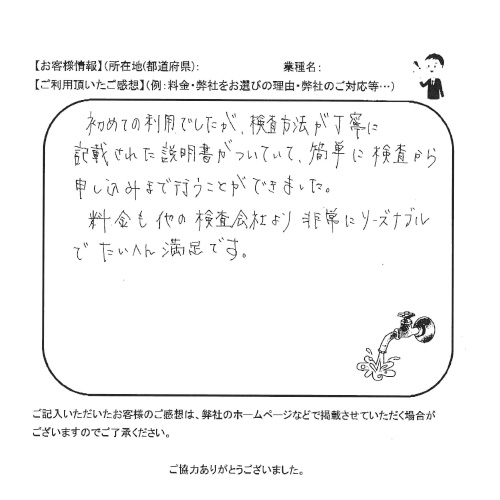 【お客様情報】(所在地(都道府県):　　　　　　業種名:
【ご利用頂いたご感想】(例:料金・弊社をお選びの理由・弊社のご対応等…)
初めての利用でしたが、検査方法が丁寧に
記載された説明書がついていて、簡単に検査から
申し込みまで行うことができました。
料金も他の検査会社より非常にリーズナブル
でたいへん満足です。
ご記入いただいたお客様のご感想は、弊社のホームページなどで掲載させていただく場合が
ございますのでご了承ください。
ご協力ありがとうございました。